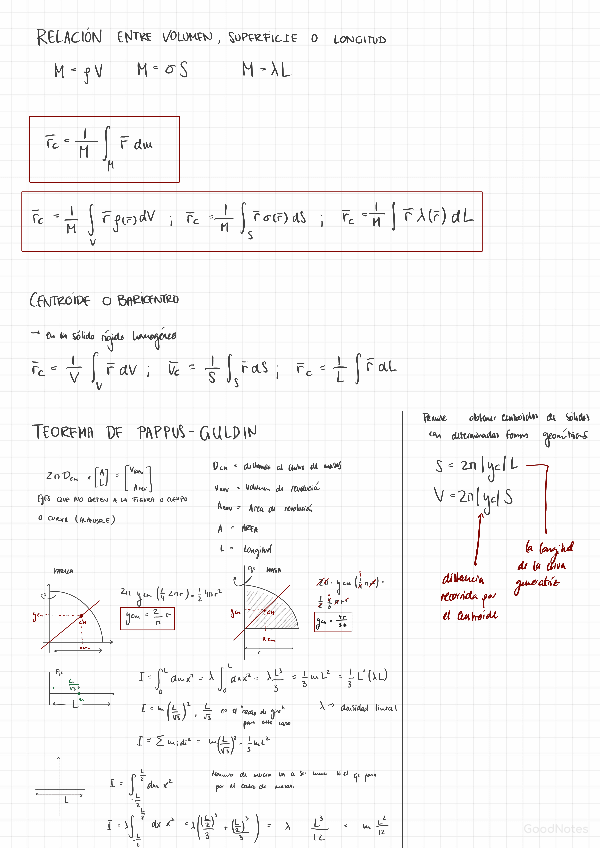 RELACIÓN ENTRE VOLUMEN, SUPERFICIE O LONGITUD
M = ρV M = σS M = λL
r̄c = 1/M ∫_M r̄ dm
r̄c = 1/M ∫_V r̄ ρ(r̄) dV ; r̄c = 1/M ∫_S r̄ σ(r̄) dS ; r̄c = 1/M ∫ r̄ λ(r̄) dL
CENTROIDE O BARICENTRO
→ en un sólido rígido homogéneo
r̄c = 1/V ∫_V r̄ dV ; r̄c = 1/S ∫_S r̄ dS ; r̄c = 1/L ∫ r̄ dL
TEOREMA DE PAPPUS-GULDIN
2π D_CM · [A L] = [V_REV A_REV]
EJES QUE NO CORTEN A LA FIGURA O CUERPO
O CURVA
D_CM = distancia al centro de masas
V_REV = Volumen de revolución
A_REV = Area de revolución
A = AREA
L = Longitud
Permite obtener centroides de sólidos
con determinadas formas geométricas
S = 2π |yc| L
V = 2π |yc| S
la longitud
de la curva
generatriz
distancia
recorrida por
el centroide
VARILLA
CM
2π y_CM (1/4 2πr) = 1/2 4πr²
y_CM = 2/π r
CM
I = ∫_0^L dm x² = λ ∫_0^L dx x² = λ L³/3 = 1/3 m L² = 1/3 L² (λL)
I = m (L/√3)² ; L/√3 es el radio de giro
para este caso
λ → densidad lineal
I = Σ m_i d_i² = m (L/√3)² = 1/3 m L²
L
L
I = ∫_{-L/2}^{L/2} dm x²
por el centro de masas.
I = λ ∫_{-L/2}^{L/2} dx x² = λ ((L/2)³/3 + (L/2)³/3) = λ L³/12 = m L²/12
GoodNotes